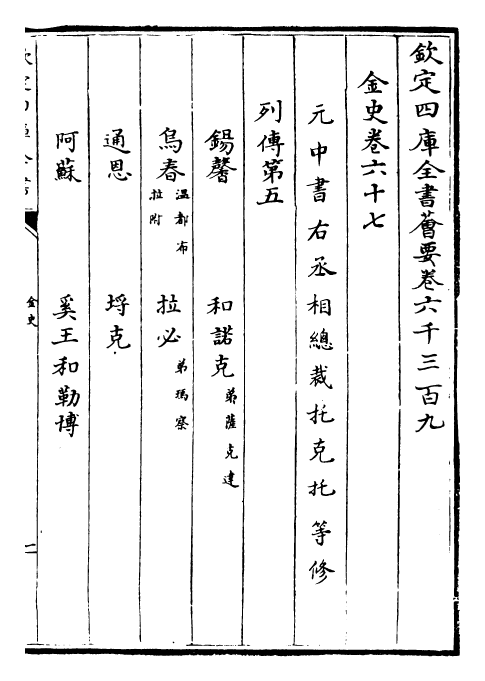 欽定四庫全書薈要卷六千三百九
金史卷六十七
元中書右丞相總裁托克托等修
列傳第五
錫馨 和諾克 弟薩克達
烏春 温都布拉附 拉必 弟瑪察
通恩 埒克
阿蘇 奚王和勒博
金史
一